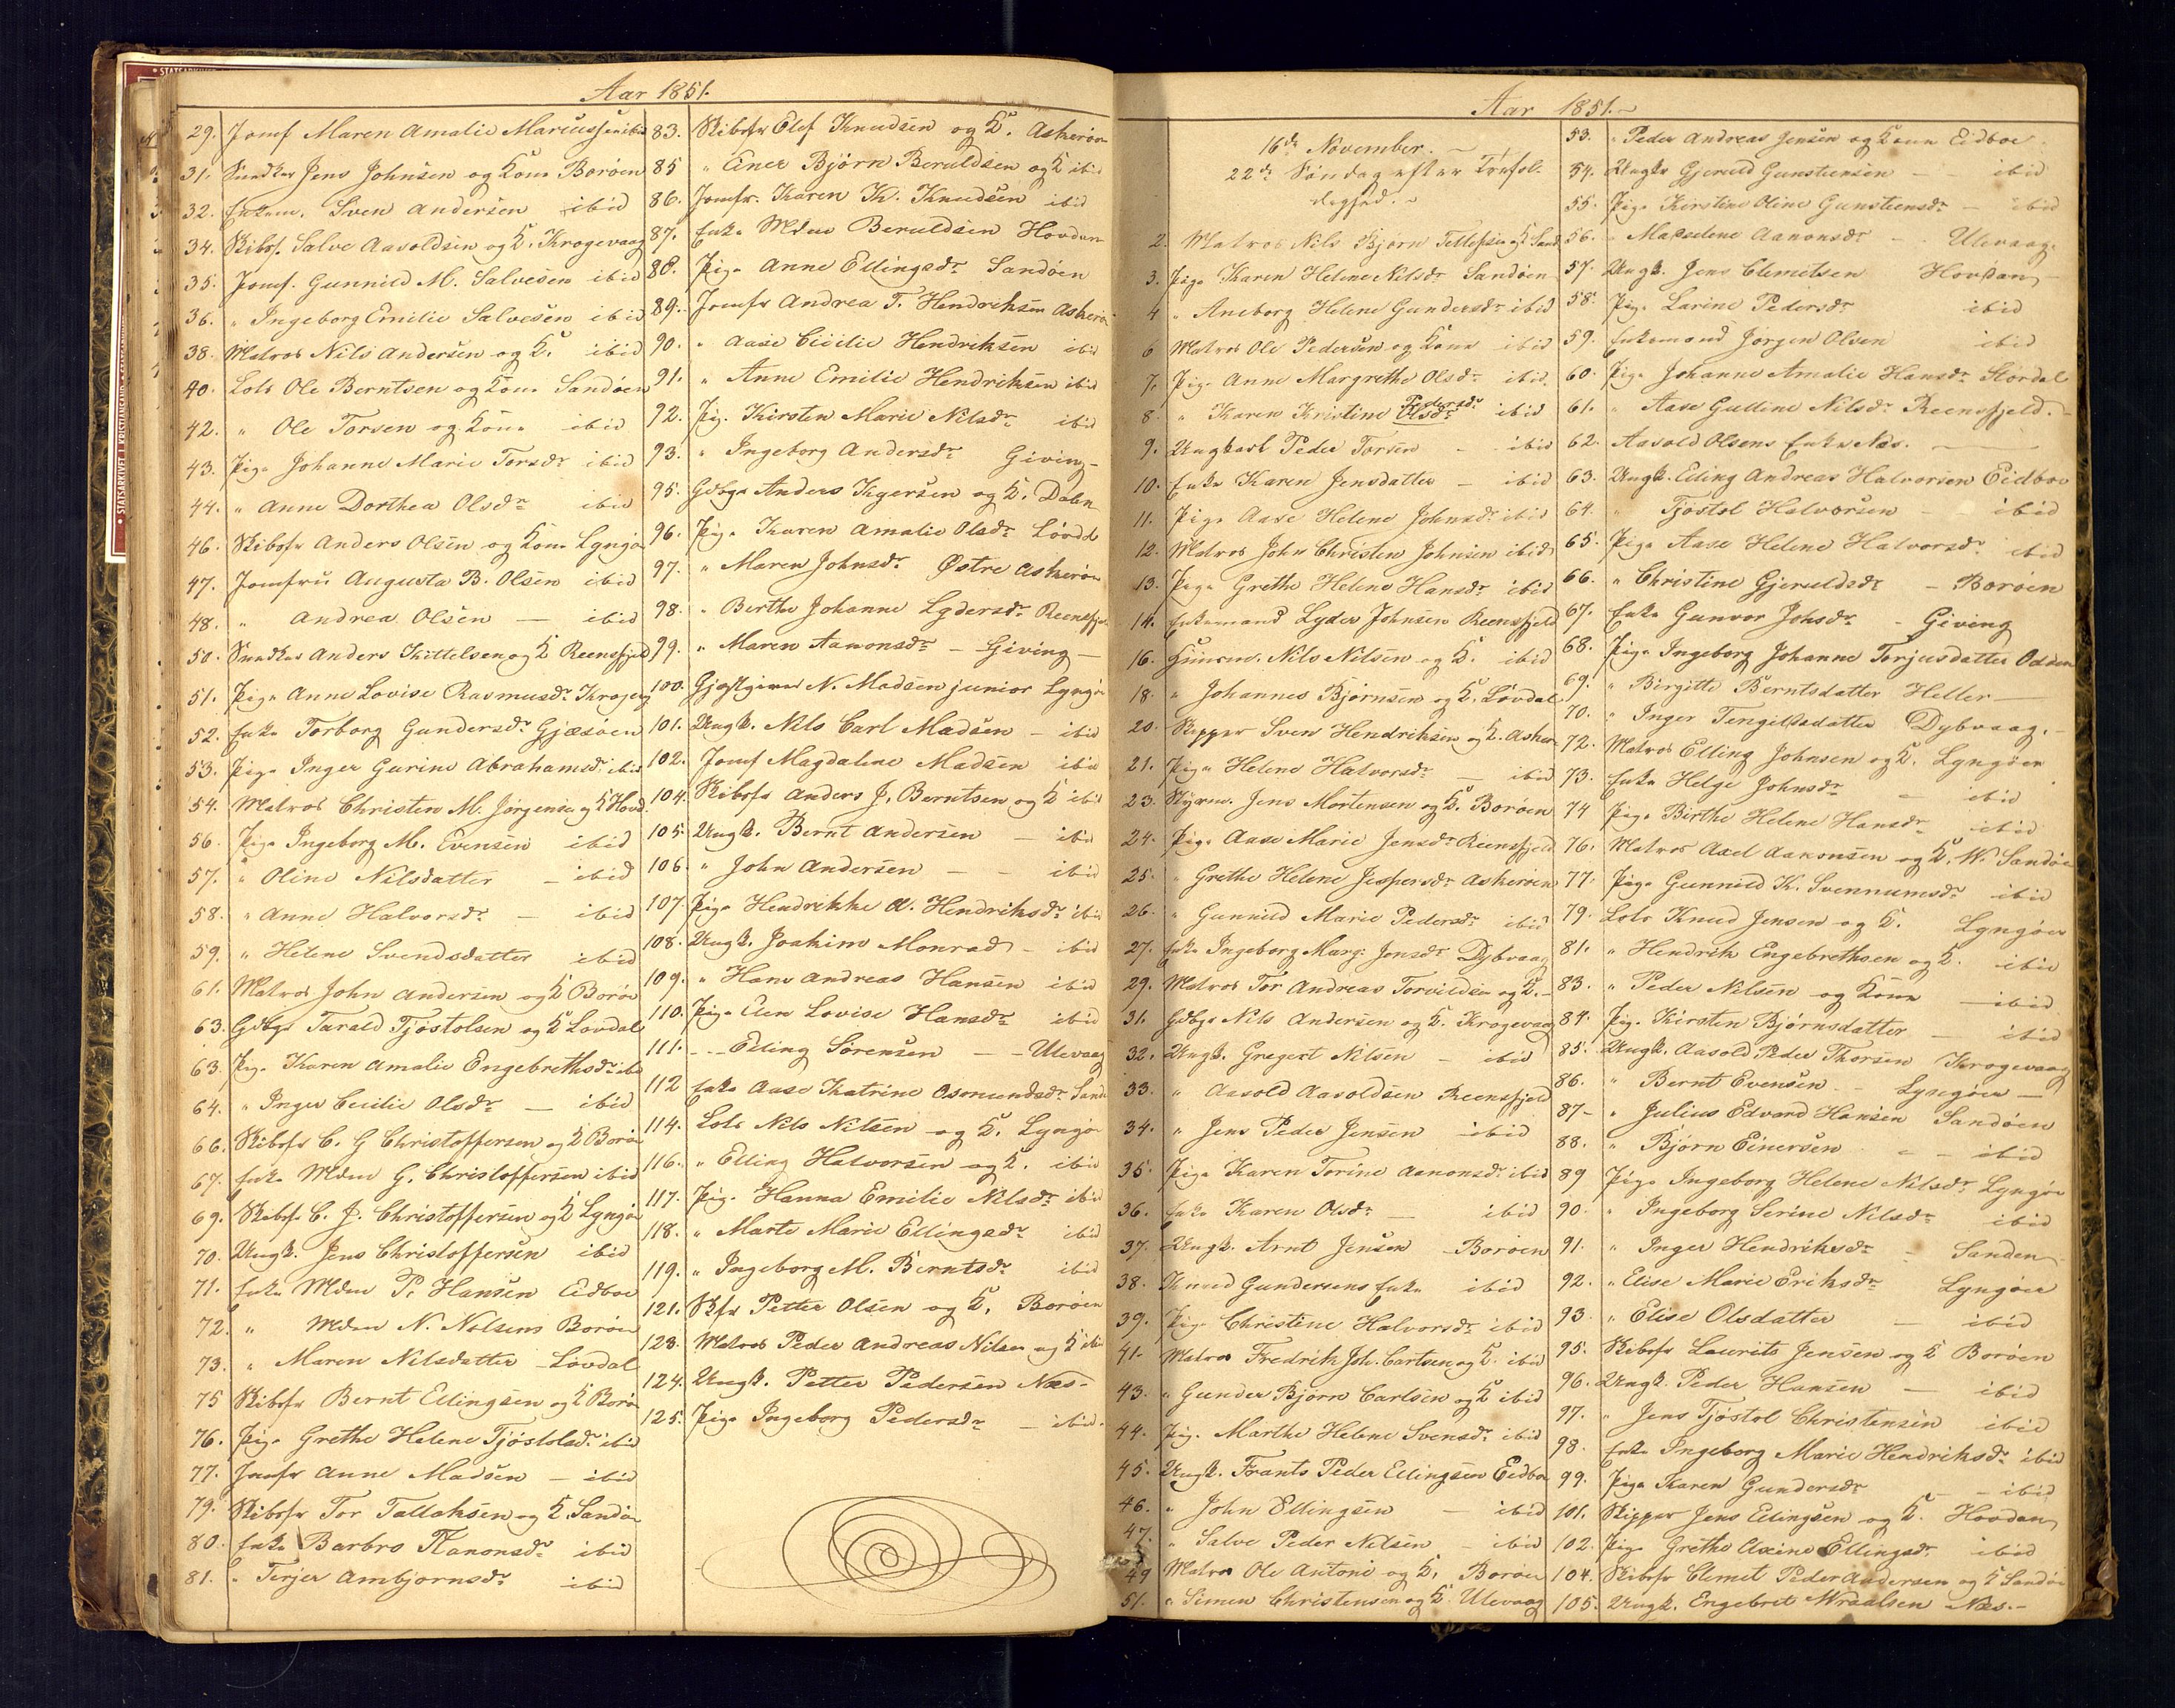 Aar 1851.
29. Jomf Maren Amalie Mariussen ibid
31. Snedker Jens Johnsen og Kone Borøen
32. Enkem. Sven Andersen ibid
34. Skibsf. Salve Aavoldsen og K. Krogevaag
35. Jomf. Gunnild M. Salvesen ibid
36. " Ingeborg Emilie Salvesen ibid
38. Matros Nils Andersen og K. ibid
40. Lods Ole Berntsen og Kone Sandøen
42. " Ole Torsen og Kone ibid
43. Pige Johanne Marie Torsdr ibid
44. " Anne Dorthea Olsdr ibid
46. Skibsfr Anders Olsen og Kone Lyngør
47. Jomfru Augusta B. Olsen ibid
48. " Andrea Olsen — ibid
50. Snedker Anders Kittelsen og K Reensfjeld
51. Pige Anne Lovise Rasmusdr Krogevg
52. Enke Torborg Gundersdr Gjæsøen
53. Pige Inger Gurine Abrahamsdr ibid
54. Matros Christen M. Jørgensen og K Hovd
56. Pige Ingeborg M. Evensen ibid
57. " Oline Nilsdatter — ibid
58. " Anne Halvorsdr — ibid
59. " Helene Svendsdatter ibid
61. Matros John Andersen og K Borøe
63. Gdbgr Tarald Tjøstolsen og K Løvdal
63. Pige Karen Amalie Engebrethsdr ibd
64. " Inger Cecilie Olsdr — ibid
66. Skibsfr C. G Christoffersen og K Borø
67. Enke Mdme G. Christoffersen ibid
69. Skibsfr C. J. Christoffersen og K Lyngø
70. Ungk. Jens Christoffersen ibid
71. Enke Mdme P. Hansen Eidboe
72. " Mdme N. Nilsens Borøen
73. " Maren Nilsdatter Løvdal
75 Skibsfr Bernt Ellingsen og K Borø
76. Pige Grethe Helene Tjøstolsdr ibid
77. Jomfr Anne Madsen — ibid
79. Skibsfr Tor Tallaksen og K. Sandø
80. Enke Barbro Aanonsdr ibid
81. " Terjer Ambjornsdr ibid
83. Skibsfr Olef Knudsen og K. Askerøen
85 " Ener Bjørn Beruldsen og K ibid
86. Jomfr. Karen K. Knudsen ibid
87. Enke Mdme Beruldsen Hovdan
88. Pige Anne Ellingsdr Sandøen
89. Jomfr Andrea T. Hendriksen Askerø
90. " Aase Cicilie Hendriksen ibid
91. " Anne Emilie Hendriksen ibid
92. Pig. Kirsten Marie Nilsdr ibid
93. " Ingeborg Andersdr Giving —
95. Gdbgr Anders Kgersen og K. Dalen
96. Pige Karen Amalie Olsdr Løvdl
97. " Maren Johnsdr Østre Askerøen
98. " Berthe Johanne Lydersdr Reensfje
99. " Maren Aanonsdr — Giving —
100. Gjæstgiver N. Madsen junior Lyngø
101. Ungk. Nils Carl Madsen — ibid
102. Jomf Magdaline Madsen ibid
104. Skibsfr Anders J. Berntsen og K ibid
105. Ungk. Bernt Andersen — ibid
106. " John Andersen — — ibid
107. Pige Hendrikke A. Hendriksdr ibid
108. Ungk. Joakim Monrad — ibid
109. " Hans Andreas Hansen ibid
110. Pige Elen Lovise Hansdr ibid
111. — Elling Sørensen — Ulevaag
112 Enke Aase Katrine Osmundsdr Sand
114. Lods Nils Nilsen og K. Lyngø
116. " Elling Halvorsen og K. ibid
117. Pige Hanna Emilie Nilsdr ibid
118. " Marte Marie Ellingsdr ibid
119. " Ingeborg M. Berntsdr ibid
121. Skfr Petter Olsen og K. Borøen
123. Matros Peder Andreas Nilsen og K ibid
124. Ungk. Petter Pedersen Næs —
125. Pige Ingeborg Pedersdr — ibid.
Aar 1851. —
16de November. —
22de Søndag efter Trefol-
dighed. —
2. Matros Nils Bjørn Tellefsen og K Sand
3. Pige Karen Helene Nilsdr Sandøen
4 " Aneborg Helene Gundersdr ibid
6 Matros Ole Pedersen og Kone ibid
7. Pige Anne Margrethe Olsdr ibid.
8. " Karen Kristine Olsdr Pedersdr ibid
9. Ungkarl Peder Torsen — ibid
10. Enke Karen Jensdatter — ibid
11. Pige Aase Helene Johnsdr ibid
12. Matros John Christen Johnsen ibid
13. Pige Grethe Helene Hansdr ibid
14. Enkemand Lyder Johnsen Reensfjeld
16. Huusm. Nils Nilsen og K. ibid
18. " Johannes Bjørnsen og K. Løvdal
20. Skipper Sven Hendriksen og K. Asker
21. Pige Helene Halvorsdr — ibid
23. Styrm. Jens Mortensen og K. Borøen
24. Pige Aase Marie Jensdr Reensfjeld
25. " Grethe Helene Jespersdr Askerøen
26. " Gunnild Marie Pedersdr ibid
27. Enke Ingeborg Marg. Jonsdr Dybvaag
29. Matros Tor Andreas Torvildsen og K. —
31. Gdbgr Nils Andersen og K. Krogevaag
32. Ungk. Gregert Nilsen — ibid
33. " Aavold Aavoldsen Reensfjeld
34. " Jens Peder Jensen ibid
35. Pige Karen Torine Aanonsdr ibid
36. Enke Karen Olsdr — ibid
37. Ungk. Arnt Jensen Borøen
38. Knud Gundersens Enke ibid
39. Pige Christine Halvorsdr ibid
41. Matros Fredrik Joh. Carlsen og K. ibid
43. " Gunder Bjørn Carlsen og K ibid
44. Pig. Marthe Helene Svensdr ibid
45. Ungk. Frants Peder Ellingsen Eidboe
46. " John Ellingsen — ibid
47. " Salve Peder Nilsen — ibid
49 Matros Ole Antoni og K. Borøen
51. " Simen Christensen og K. Ulevaag
53. " Peder Andreas Jensen og Kone Eidboe
54. Ungkr Gjeruld Gunstensen — ibid
55. Pige Kirstine Oline Gunstensdr — ibid
56. " Madselene Aanonsdr — Ulevaag.
57. Ungk. Jens Clemetsen Hovdan
58. Pige Larine Pedersdr ibid
59. Enkemand Jørgen Olsen ibid
60. Pige Johanne Amalie Hansdr Stordal
61. " Aase Gulline Nilsdr Reensfjeld. —
62. Aavold Olsens Enke Næs. —
63. Ungk. Elling Andreas Halvorsen Eidboe
64. " Tjøstol Halvorsen ibid
65. Pige Aase Helene Halvorsdr ibid
66. " Christine Gjeruldsdr — Borøen
67. Enke Gunvor Johsdr — Giving
68. Pige Ingeborg Johanne Torjusdatter Odden
69. " Birgitte Berntsdatter Heller —
70. " Inger Tengilsdatter Dybvaag. —
72. Matros Elling Johnsen og K. Lyngøer
73. Enke Helge Johnsdr — ibid
74 Pige Birthe Helene Hansdr ibid
76. Matros Axel Aanonsen og K. N. Sandøe
77. Pige Gunnild K. Svennumsdr ibid
79. Lods Knud Jensen og K. Lyngøer
81. " Hendrik Engebrethsen og K. ibid
83. " Peder Nilsen og Kone — ibid
84. Pige Kirsten Bjørnsdatter — ibid
85. Ungk. Aavold Peder Thorsen Krogevaag
86. " Bernt Evensen — Lyngøer —
87 — " Julius Edvard Hansen Sandøen
88. " Bjørn Einersen — ibid
89 Pige Ingeborg Helene Nilsdr Lyngøe
90. " Ingeborg Serine Nilsdr ibid
91. " Inger Hendriksdr — Sanden
92. " Elise Marie Eriksdr Lyngøer
93. " Elise Olsdatter — ibid
95. Skibsfr Laurits Jensen og K Borøen
96. Ungk. Peder Hansen — ibid
97. " Jens Tjøstol Christensen ibid
98. Enke Ingeborg Marie Hendriksdr ibid
99. Pige Karen Gundersdr — ibid
101. Skipper Jens Ellingsen og K. Hovdan
102. Pige Grethe Axine Ellingsdr ibid
104. Skibsfr Clemet Peder Andersen og K Sandøe
105. Ungk. Engebret Wraalsen Næs. —